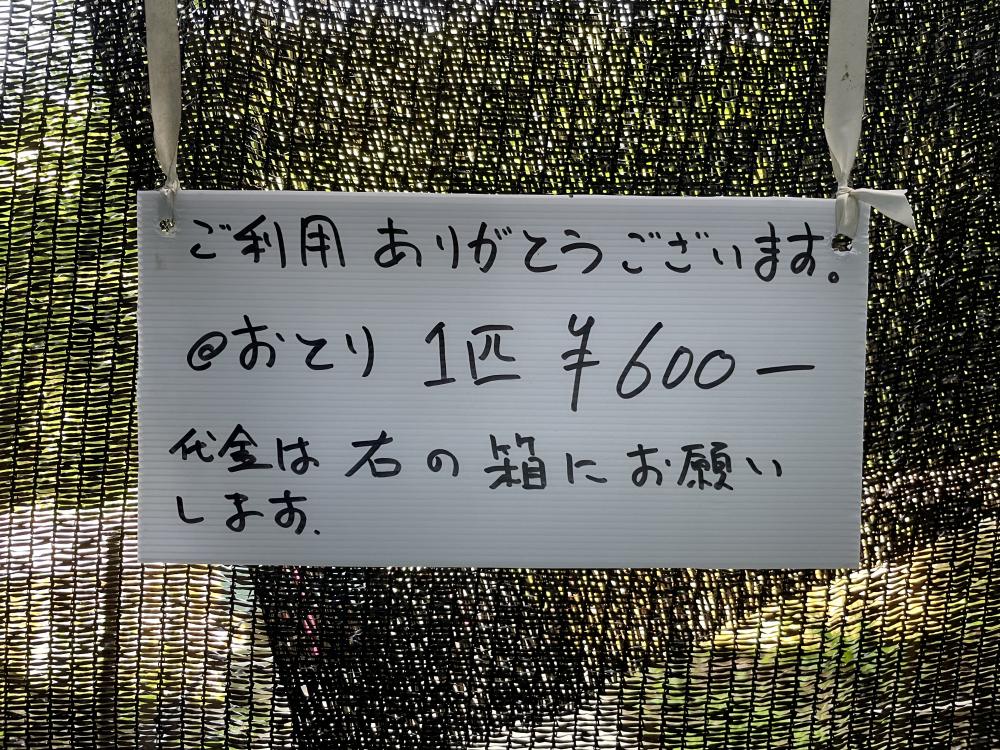 ご利用 ありがとうございます。
@おとり 1匹 ¥600ー
代金は 右の箱にお願い
します.